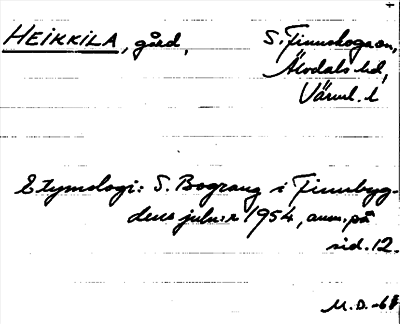 HEIKKILA, gård, S. Finnskogaon,
Älvdals hd,
Värml. l
Etymologi: S. Bograng i Finnbyg-
dens julnr 1954, anm. på
sid. 12.
M.D. -68